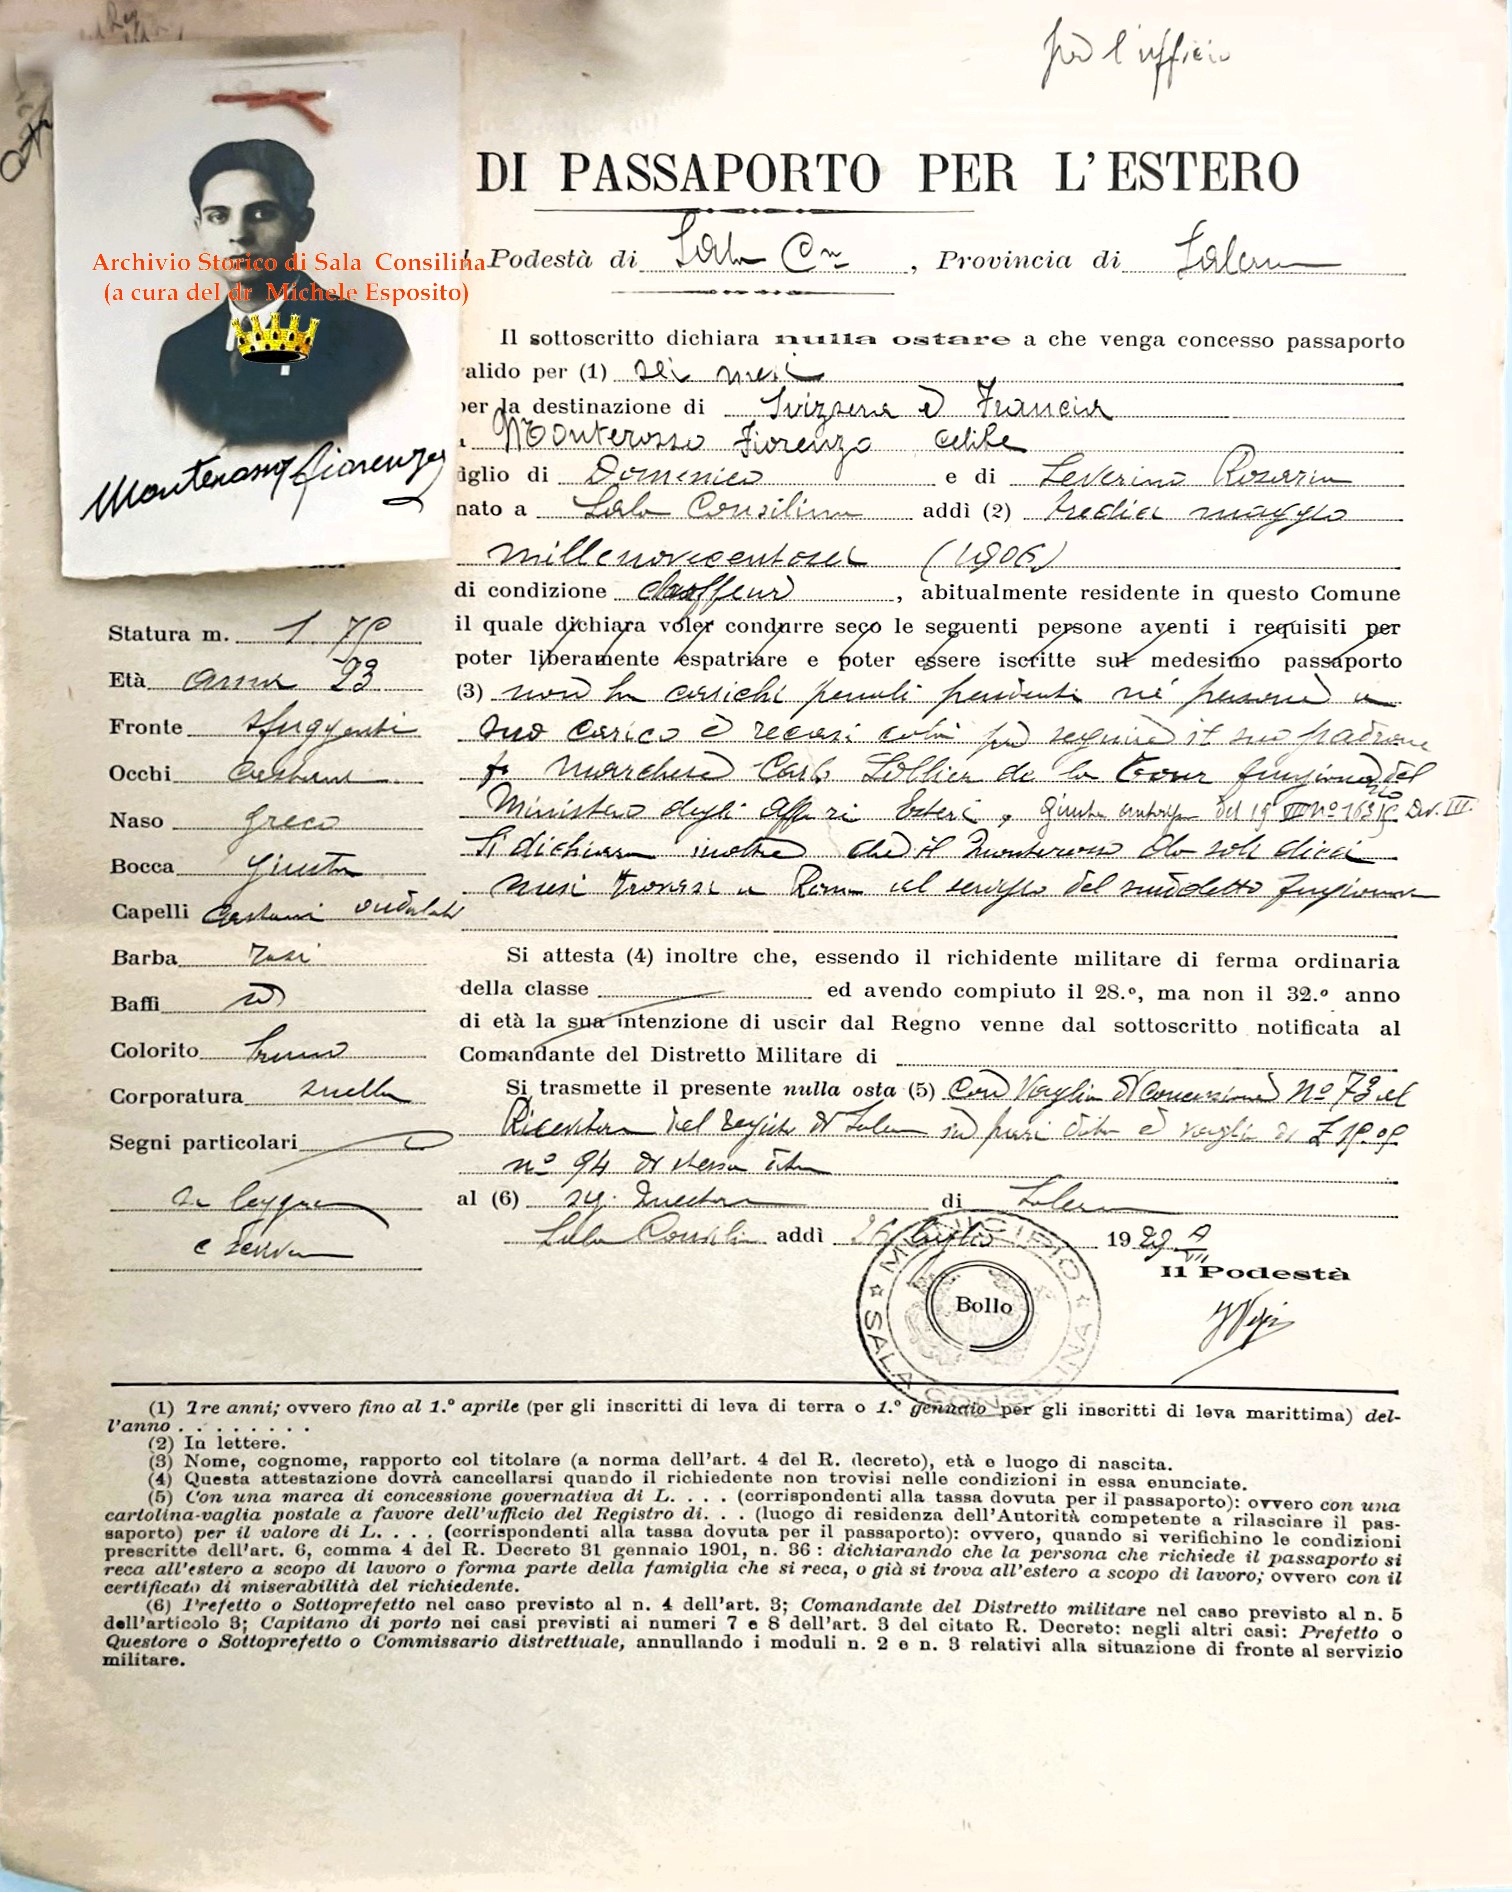 per l'ufficio
DI PASSAPORTO PER L'ESTERO
Podestà di Sala Cna, Provincia di Salerno
Archivio Storico di Sala Consilina
(a cura del dr Michele Esposito)
Monterosso Fiorenzo
Il sottoscritto dichiara nulla ostare a che venga concesso passaporto
alido per (1) sei mesi
per la destinazione di Svizzera e Francia
Monterosso Fiorenzo celibe
iglio di Domenico e di Severino Rosaria
nato a Sala Consilina addì (2) tredici maggio
millenovecentosei (1906)
di condizione chauffeur, abitualmente residente in questo Comune
il quale dichiara voler condurre seco le seguenti persone aventi i requisiti per
poter liberamente espatriare e poter essere iscritte sul medesimo passaporto
(3) non ha carichi penali pendenti né persone a
suo carico e recasi colà per seguire il suo padrone
marchese Carlo de la Tour funzionario del
Ministero degli Affari Esteri, giusta del 19
Si dichiara inoltre che il Monterosso da soli dieci
mesi trovasi a Roma al servizio del suddetto funzionario
Statura m. 1.75
Età anni 23
Fronte sfuggente
Occhi castani
Naso greco
Bocca giusta
Capelli castani ondulati
Barba rasa
Baffi id
Colorito bruno
Corporatura snella
Segni particolari
sa leggere
e scrivere
Si attesta (4) inoltre che, essendo il richidente militare di ferma ordinaria
della classe ed avendo compiuto il 28.º, ma non il 32.º anno
di età la sua intenzione di uscir dal Regno venne dal sottoscritto notificata al
Comandante del Distretto Militare di
Si trasmette il presente nulla osta (5) con vaglia di concessione Nº 73 al
Ricevitore del registro di Salerno in pari data e vaglia di
nº 94 di stessa data
al (6) sig. Questore di Salerno
Sala Consilina addì 26 luglio 1929 A VII
Il Podestà
MUNICIPIO
SALA CONSILINA
Bollo
(1) Tre anni; ovvero fino al 1.º aprile (per gli inscritti di leva di terra o 1.º gennaio per gli inscritti di leva marittima) del-
l'anno . . . . . . . .
(2) In lettere.
(3) Nome, cognome, rapporto col titolare (a norma dell'art. 4 del R. decreto), età e luogo di nascita.
(4) Questa attestazione dovrà cancellarsi quando il richiedente non trovisi nelle condizioni in essa enunciate.
(5) Con una marca di concessione governativa di L. . . . (corrispondenti alla tassa dovuta per il passaporto): ovvero con una
cartolina-vaglia postale a favore dell'ufficio del Registro di. . . (luogo di residenza dell'Autorità competente a rilasciare il pas-
saporto) per il valore di L. . . . (corrispondenti alla tassa dovuta per il passaporto): ovvero, quando si verifichino le condizioni
prescritte dell'art. 6, comma 4 del R. Decreto 31 gennaio 1901, n. 36 : dichiarando che la persona che richiede il passaporto si
reca all'estero a scopo di lavoro o forma parte della famiglia che si reca, o già si trova all'estero a scopo di lavoro; ovvero con il
certificato di miserabilità del richiedente.
(6) Prefetto o Sottoprefetto nel caso previsto al n. 4 dell'art. 3; Comandante del Distretto militare nel caso previsto al n. 5
dell'articolo 3; Capitano di porto nei casi previsti ai numeri 7 e 8 dell'art. 3 del citato R. Decreto: negli altri casi: Prefetto o
Questore o Sottoprefetto o Commissario distrettuale, annullando i moduli n. 2 e n. 3 relativi alla situazione di fronte al servizio
militare.